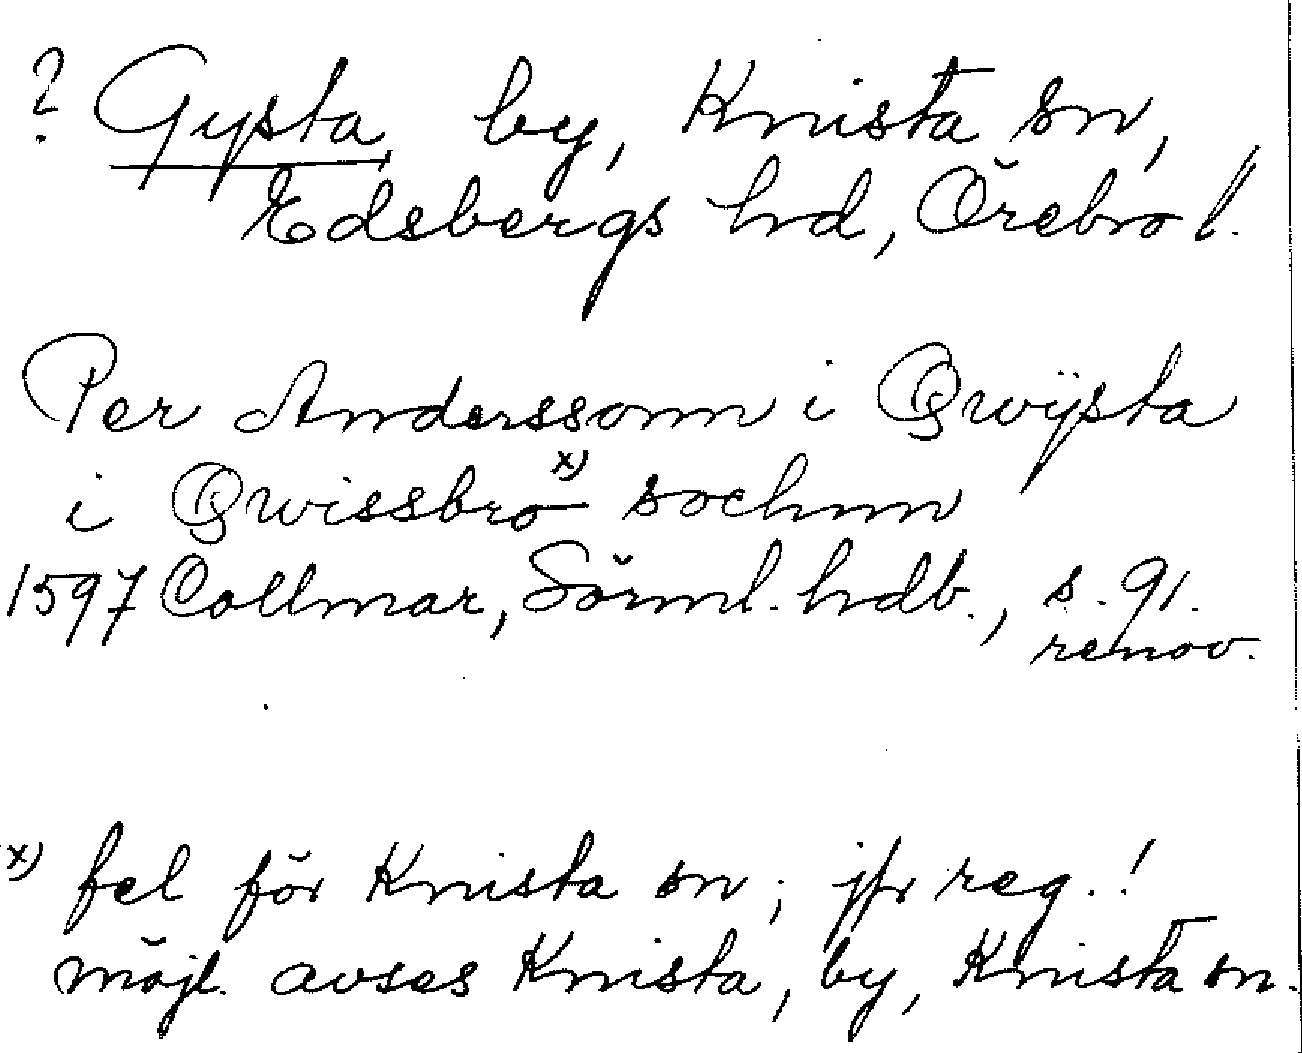 ? Gysta, by, Knista sn,
Edsbergs hrd, Örebro l.
Per Anderssonn i Qwÿsta
i Qwissbro x) sochnn
1597 Collmar, Sörml. hdb., s. 91.
renov.
x) fel för Knista sn; jfr reg.!
möjl. avses Knista, by, Knista sn.